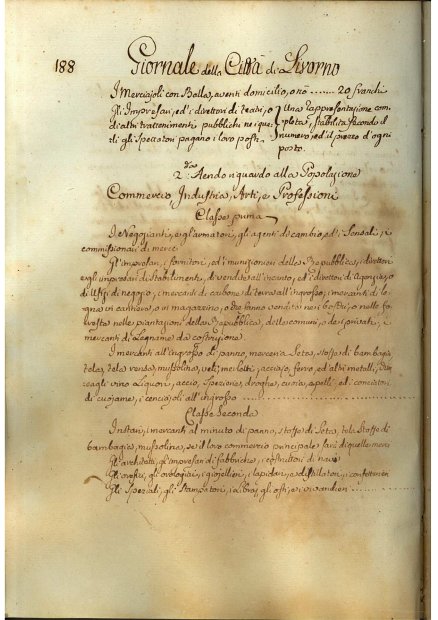 188 Giornale della Città di Livorno
I Merciajoli con Balla, aventi domicilio, o no ........ 20 franchi
Gli Impresari, ed i direttori di teatri, o
di altri trattenimenti pubblici ne' qua-
li gli Spettatori pagano i loro posti.
Una rappresentazione com-
pleta, stabilita secondo il
numero ed il prezzo d'ogni
posto.
2. Avendo riguardo alla Popolazione
Commercio, Industria, Arti, e Professioni
Classe prima
I Negozianti, e gli armatori, gli agenti di cambio, ed i Sensali, i
commissionari di merci
Gli impresari, i fornitori, ed i munizionieri della Repubblica, i direttori
e gli impresari di Stabilimenti, di vendite all'incanto, ed i direttori di Agenzie, o
di Uffizi di negozio, i mercanti di carbone di terra all'ingrosso; i mercanti di le-
gna in cantiere, o in magazzino, o che fanno vendite nei boschi, o nelle fo-
reste nelle piantazioni della Repubblica, delle comuni, dei privati, i
mercanti di Legname da costruzione
I mercanti all'ingrosso di panno, merceria Seta, stoffe di bambagia,
tela, tela rensa, mussolina, veli, merletti, acciajo, ferro, ed altri metalli,
vino Liquori, spezierie, droghe, cuoja, e pelli, ed i conciatori
di cuojame, i cenciajoli all'ingrosso
Classe Seconda
I notari, i mercanti al minuto di panno, Stoffe di Seta, tela Stoffe di
bambagia, mussolina, se il loro commercio principale sarà di quelle merci
Gli architetti, gli impresari di fabbriche, i costruttori di navi
Gli orefici, gli orologiai, i giojellieri, i lapidari, e distillatori, i confetturieri
Gli Speziali, gli Stampatori, i Librai, gli osti, e i vivandieri